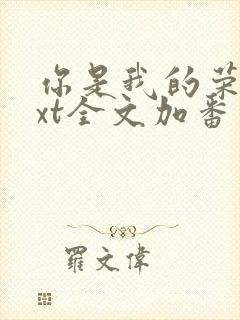 你是我的荣
xt全文加番
羅文偉